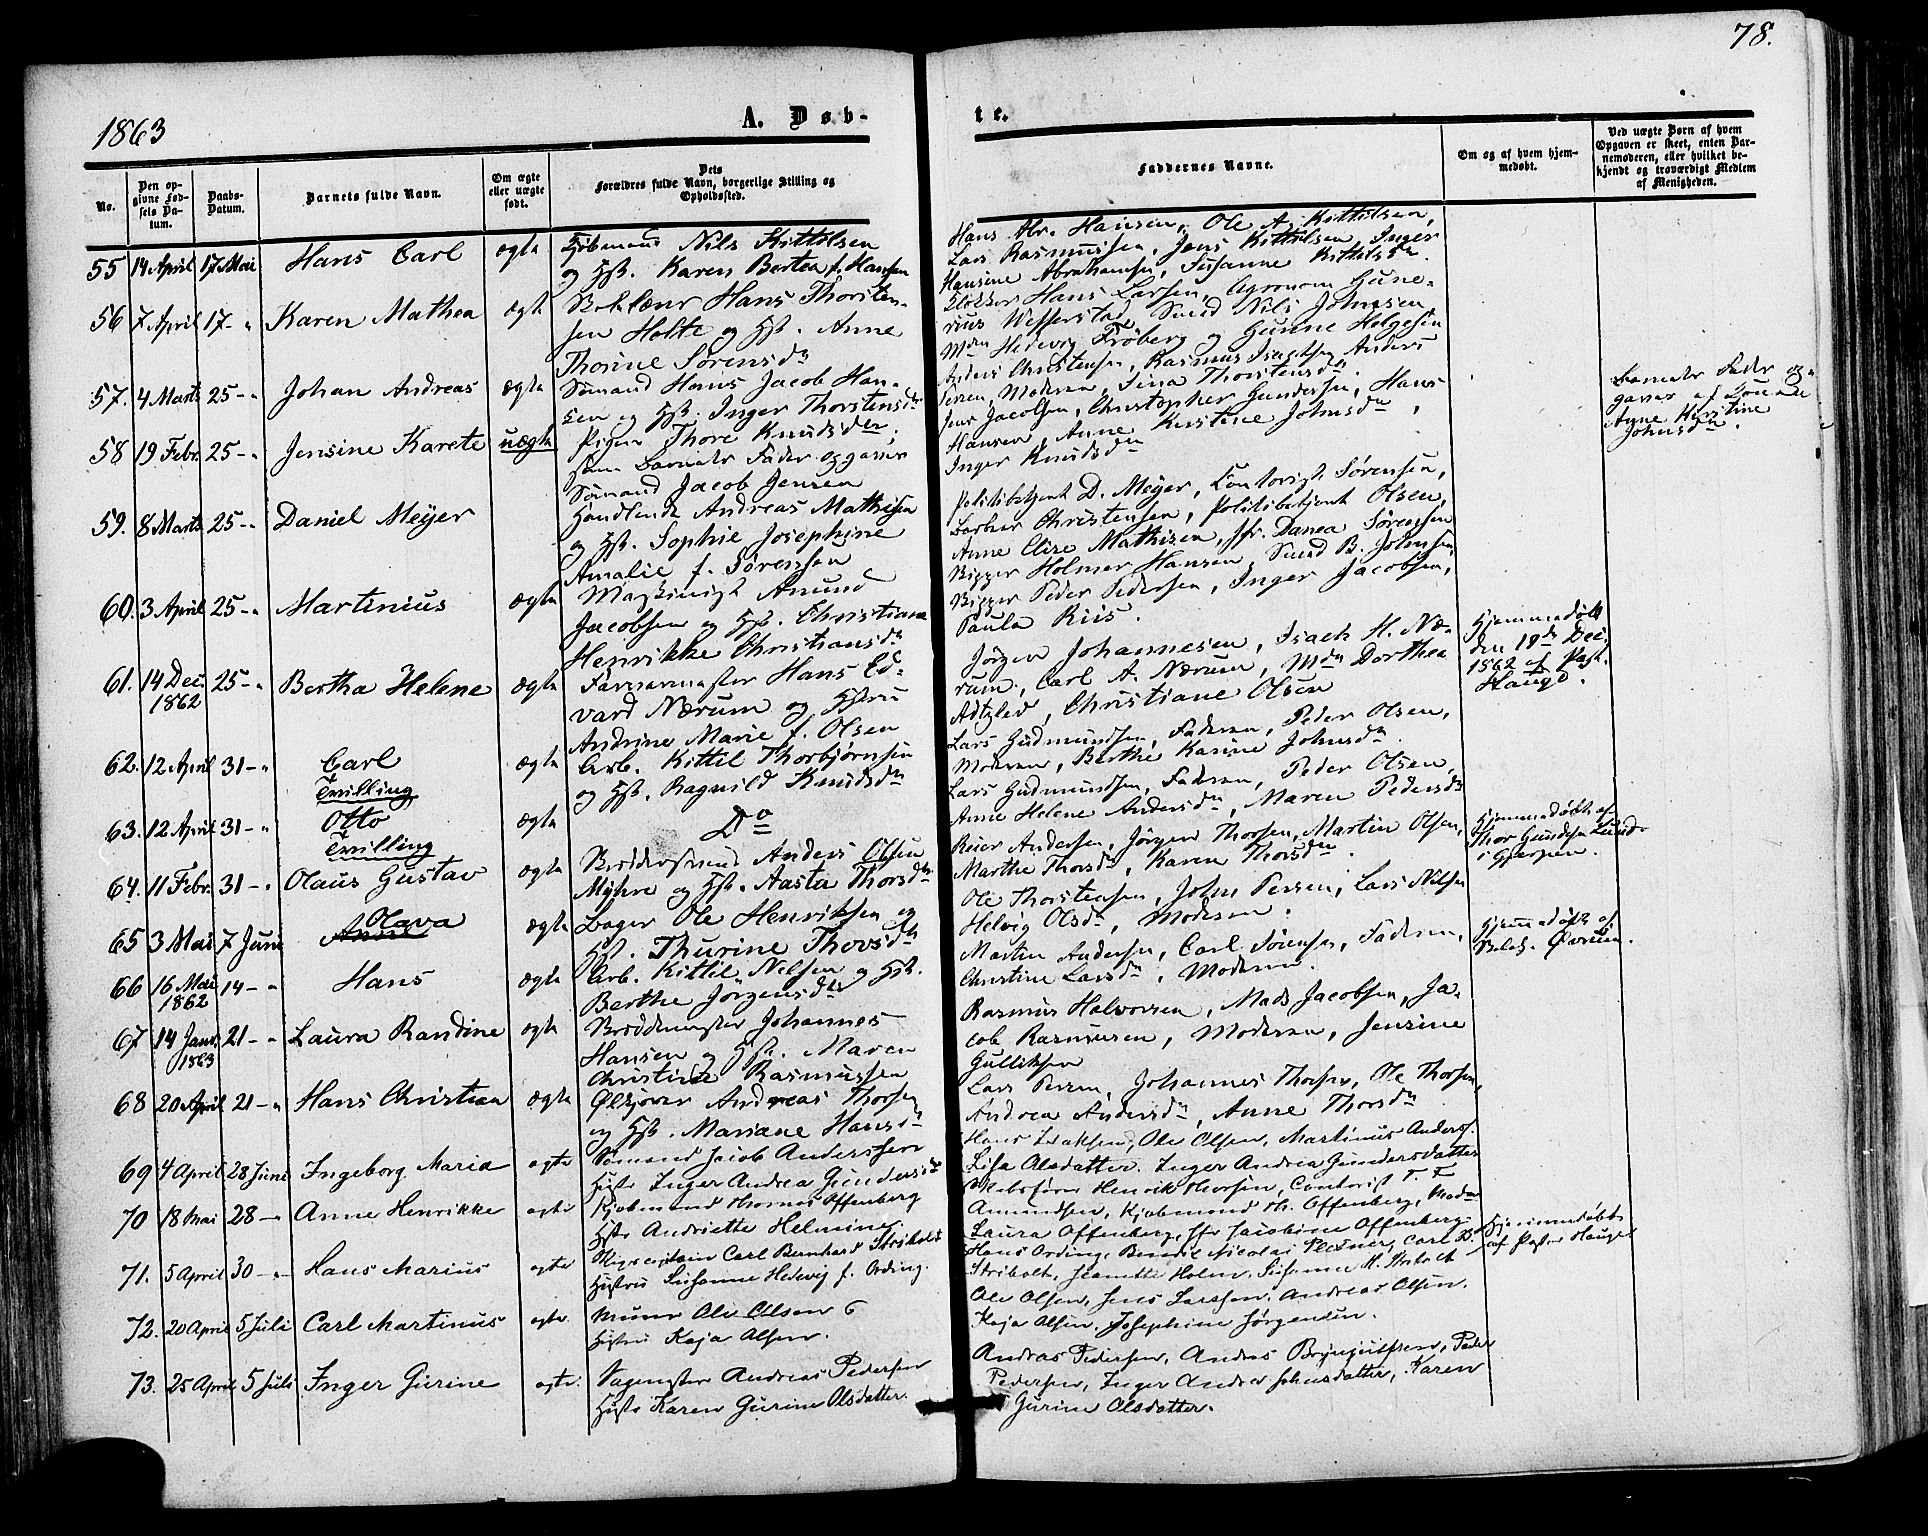 78.
1863
A. Døb-
te.
No.
Den op-
givne Fød-
sels Da-
tum.
Daabs-
Datum.
Barnets fulde Navn.
Om ægte
eller uægte
født.
Dets
Forældres fulde Navn, borgerlige Stilling og
Opholdssted.
Faddernes Navne.
Om og af hvem hjem-
medøbt.
Ved uægte Børn af hvem
Opgaven er skeet, enten Bar-
nemoderen, eller hvilket be-
kjendt og troværdigt Medlem
af Menigheden.
55 14 April 17 Mai Hans Carl ægte
Nils Kittilsen
og Hst. Karen Bertea f. Hansen
Hans Abr. Hansen, Ole A. Kittilsen,
Lars Rasmussen, Jens Kittilsen, Inger
Hansine Abrahamsen, Susanne Kittilsdn.
56 7 April 17 - " Karen Mathea ægte
Hans Thorsten-
sen Holte og Hst. Anne
Thorine Sørensdn
Klokker Hans Larsen, Agronom Gune-
rius Wefferstad, Smed Nils Johnsen
Mdm Hedevig Frøberg og Gunne Helgesen
57. 4 Marts 25 - " Johan Andreas ægte
Sømand Hans Jacob Han-
sen og Hst. Inger Thorstensdr
Anders Christensen, Rasmus Isaksen, Anders
Persen, Moderen, Sina Thorstensdn.
58 19 Febr. 25 - " Jensine Karete uægte
Pigen Thore Knudsdn,
som Barnets Fader opgaves
Sømand Jacob Jensen
Jens Jacobsen, Christopher Gundersen, Hans
Hansen, Anne Kirstine Johnsdn,
Inger Knudsdn
Barnets Fader op-
gaves af
Anne Kirstine
Johnsdn.
59. 8 Marts 25 - " Daniel Meyer
Handlende Andreas Mathisen
og Hst. Sophie Josephine
Amalie f. Sørensen
Politibetjent D. Meyer, Contorist Sørensen,
Barber Christensen, Politibetjent Olsen,
Anne Elise Mathisen, Jfr. Danea Sørensen
60. 3 April 25 - " Martinius ægte
Maskinist Amund
Jacobsen og Hst. Christiane
Henrikke Christiansdn
Rigger Holmer Hansen, Smed B. Johnsen,
Rigger Peder Pedersen, Inger Jacobsen,
Paula Riis.
61. 14 Dec. 25 - " Bertha Helene ægte
1862
Farvermester Hans Ed-
vard Nærum og Hstru
Andrine Marie f. Olsen
Jørgen Johannesen, Isach H. Næ-
rum, Carl A. Nærum, Mdm Dorthea
Adtzlev, Christiane Olsen
Hjemmedøbt
den 19de Dec.
1862 af Past.
Hauge.
62. 12 April 31 - " Carl ægte
Tvilling
Arb. Kittil Thorbjørnsen
og Hst. Ragnild Knudsdn
Lars Gudmundsen, Faderen, Peder Olsen,
Moderen, Berthe Karine Johnsdn.
63. 12 April 31 - " Otto ægte
Tvilling
Do
Lars Gudmundsen, Faderen, Peder Olsen,
Anne Helene Andersdn, Maren Pedersdn
Hjemmedøbt af
Thor Gundersen Lund
i Gjerpen.
64. 11 Febr. 31 - " Olaus Gustav ægte
Brøddersvend Anders Olsen
Myhre og Hst. Aasta Thorsdn
Reier Andersen, Jørgen Thorsen, Martin Olsen,
Marthe Thorsdn, Karen Thorsdn.
65 3 Mai 7 Juni Olava ægte
Bager Ole Henriksen og
Hst. Thurine Thovsdn
Ole Thorstensen, John Persen, Lars Nilsen
Helvig Olsdn, Moderen.
Hjemmedøbt af
66 16 Mai 14 - " Hans ægte
1862
Arb. Kittil Nelsen og Hst.
Berthe Jørgensdn
Martin Andersen, Carl Sørensen, Faderen,
Christine Larsdn, Moderen.
67 14 Janr. 21 - " Laura Randine ægte
1863
Brøddemester Johannes
Hansen og Hst. Maren
Christine Rasmussen
Rasmus Halvorsen, Mads Jacobsen, Ja-
cob Rasmussen, Moderen, Jensine
Gulliksen
68 20 April 21 - " Hans Christian ægte
Andreas Thorsen
og Hst. Mariane Hansd
Lars Persen, Johannes Thorsen, Ole Thorsen,
Andrea Andersdn, Anne Thorsdn
69 4 April 28 Juni Ingeborg Maria ægte
Sømand Jacob Anderssen
Hustr. Inger Andrea Gundersdr
Hans Isaksen, Ole Olsen, Martinus Anders.
Lisa Olsdatter. Inger Andrea Gundersdatter
70 18 Mai 28 - " Anne Henrikke ægte
Kjøbmand Thomas Offenberg
Hstr Andriette Helmine.
Skibsfører Henrik Thorsen, Contorist T. F.
Amundsen, Kjøbmand Th. Offenberg, Madm
Laura Offenberg, Jfr Jacobine Offenberg.
71. 5 April 30 - " Hans Marius ægte
Skipscaptain Carl Bernhard Stribolt
Hustru Susanne Hedevig f. Ording.
Hans Ording, Bendix Nicolai Plesner, Carl B.
Stribolt, Jeanette Holm, Susanne H. Stribolt
Hjemmedøbt
af Pastor Hauge
72. 20 April 5 Juli Carl Martinus ægte
Murer Ole Olsen
Hustru Kaja Olsen.
Ole Olsen, Jens Larssen. Andreas Olsen.
Kaja Olsen, Josephine Jørgensen.
73. 25 April 5 Juli Inger Gurine ægte.
Andreas Pedersen
Hustr. Karen Gurine Olsdatter.
Andreas Pedersen, Andreas Brynjulfsen, Peder
Pedersen, Inger Andrea Johnsdatter, Karen
Gurine Olsdatter.